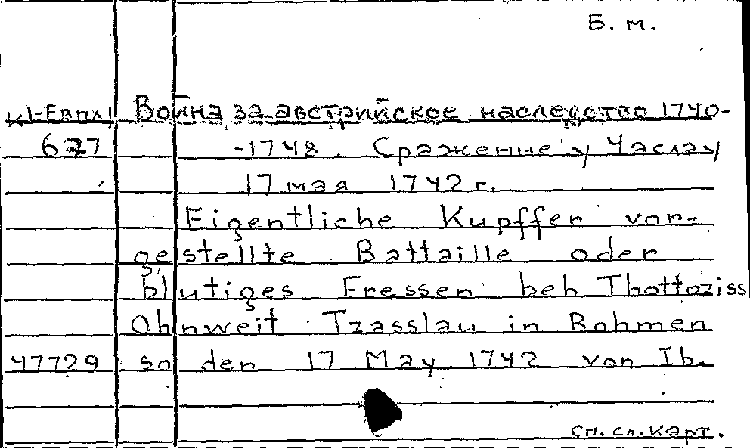 Б. м.
К1-Евпл Война за австрийское наследство 1740-
627 -1748. Сражение у Часлау
17 мая 1742 г.
Eigentliche Kupffer vor-
gestellte Battaille oder
blutiges Fressen beh Thottoziss
Ohnweit Tzasslau in Bohmen
47729 so den 17 May 1742 von Ib.
см. сл. карт.